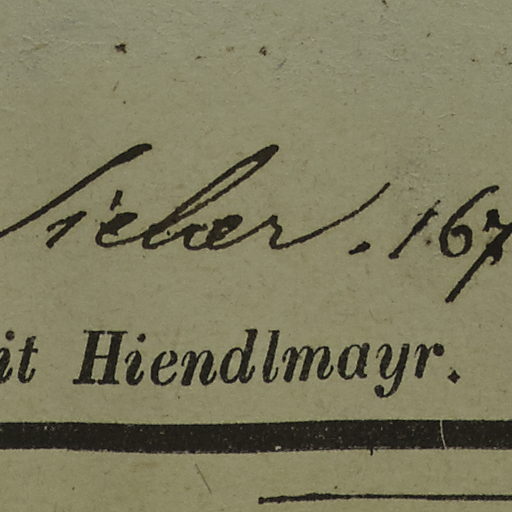 Sieber. 167
it Hiendlmayr.